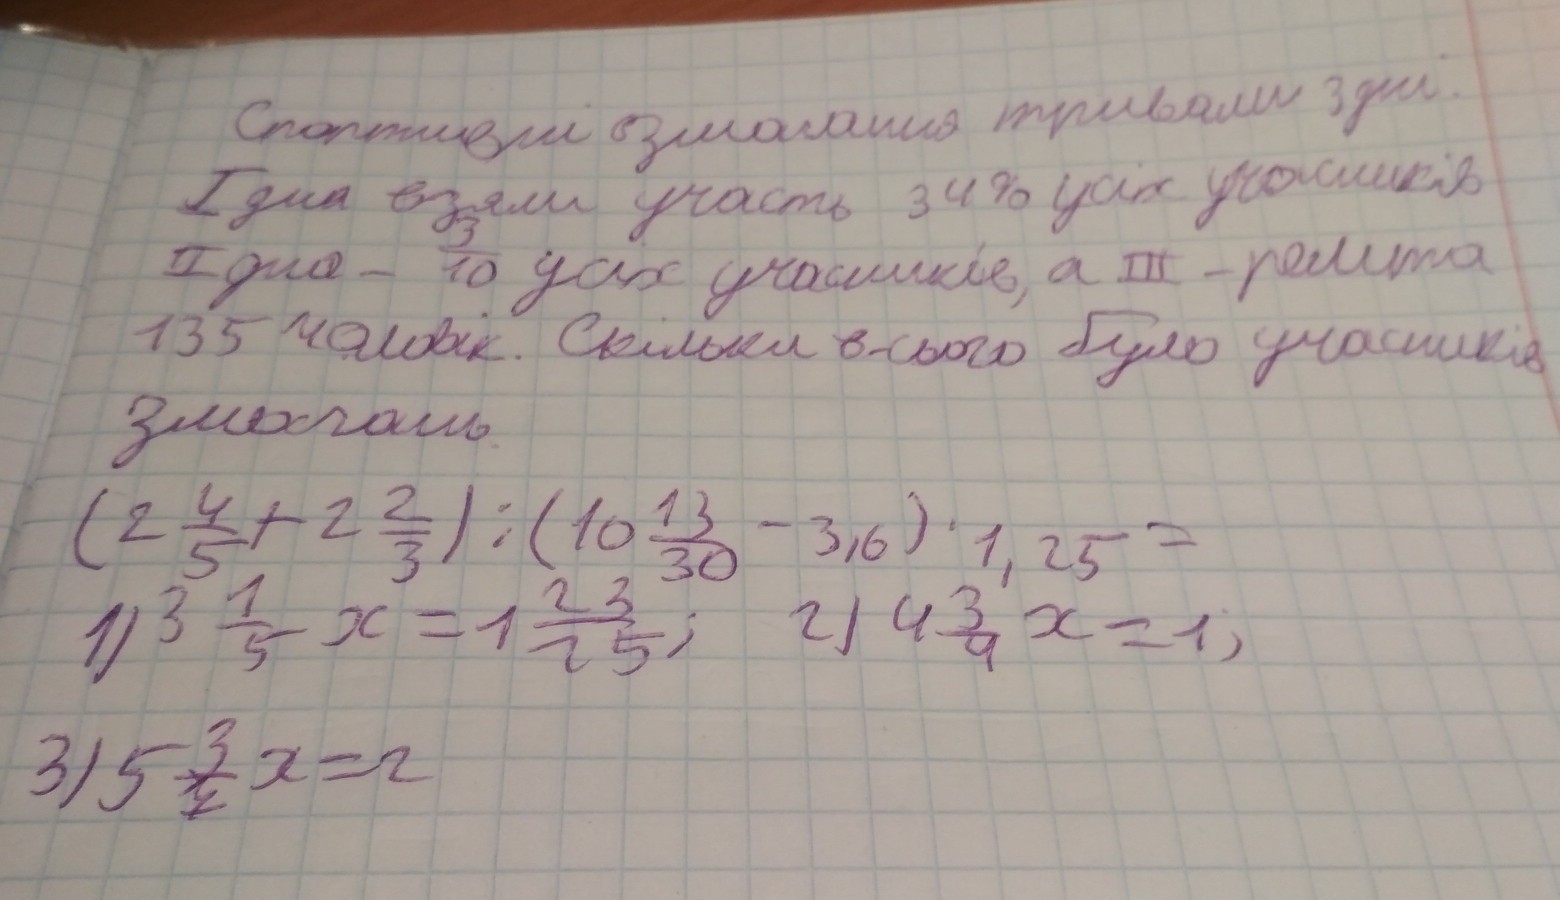 Спортивні змагання тривали 3 дні.
I дня взяли участь 34% усіх учасників
II дня – 3/10 усіх учасників, а III – решта
135 чоловік. Скільки всього було учасників
змагань.
(2 4/5 + 2 2/3) : (10 13/30 - 3,6) · 1,25 =
1) 3 1/5 x = 1 23/25; 2) 4 3/9 x = 1;
3) 5 3/4 x = 2